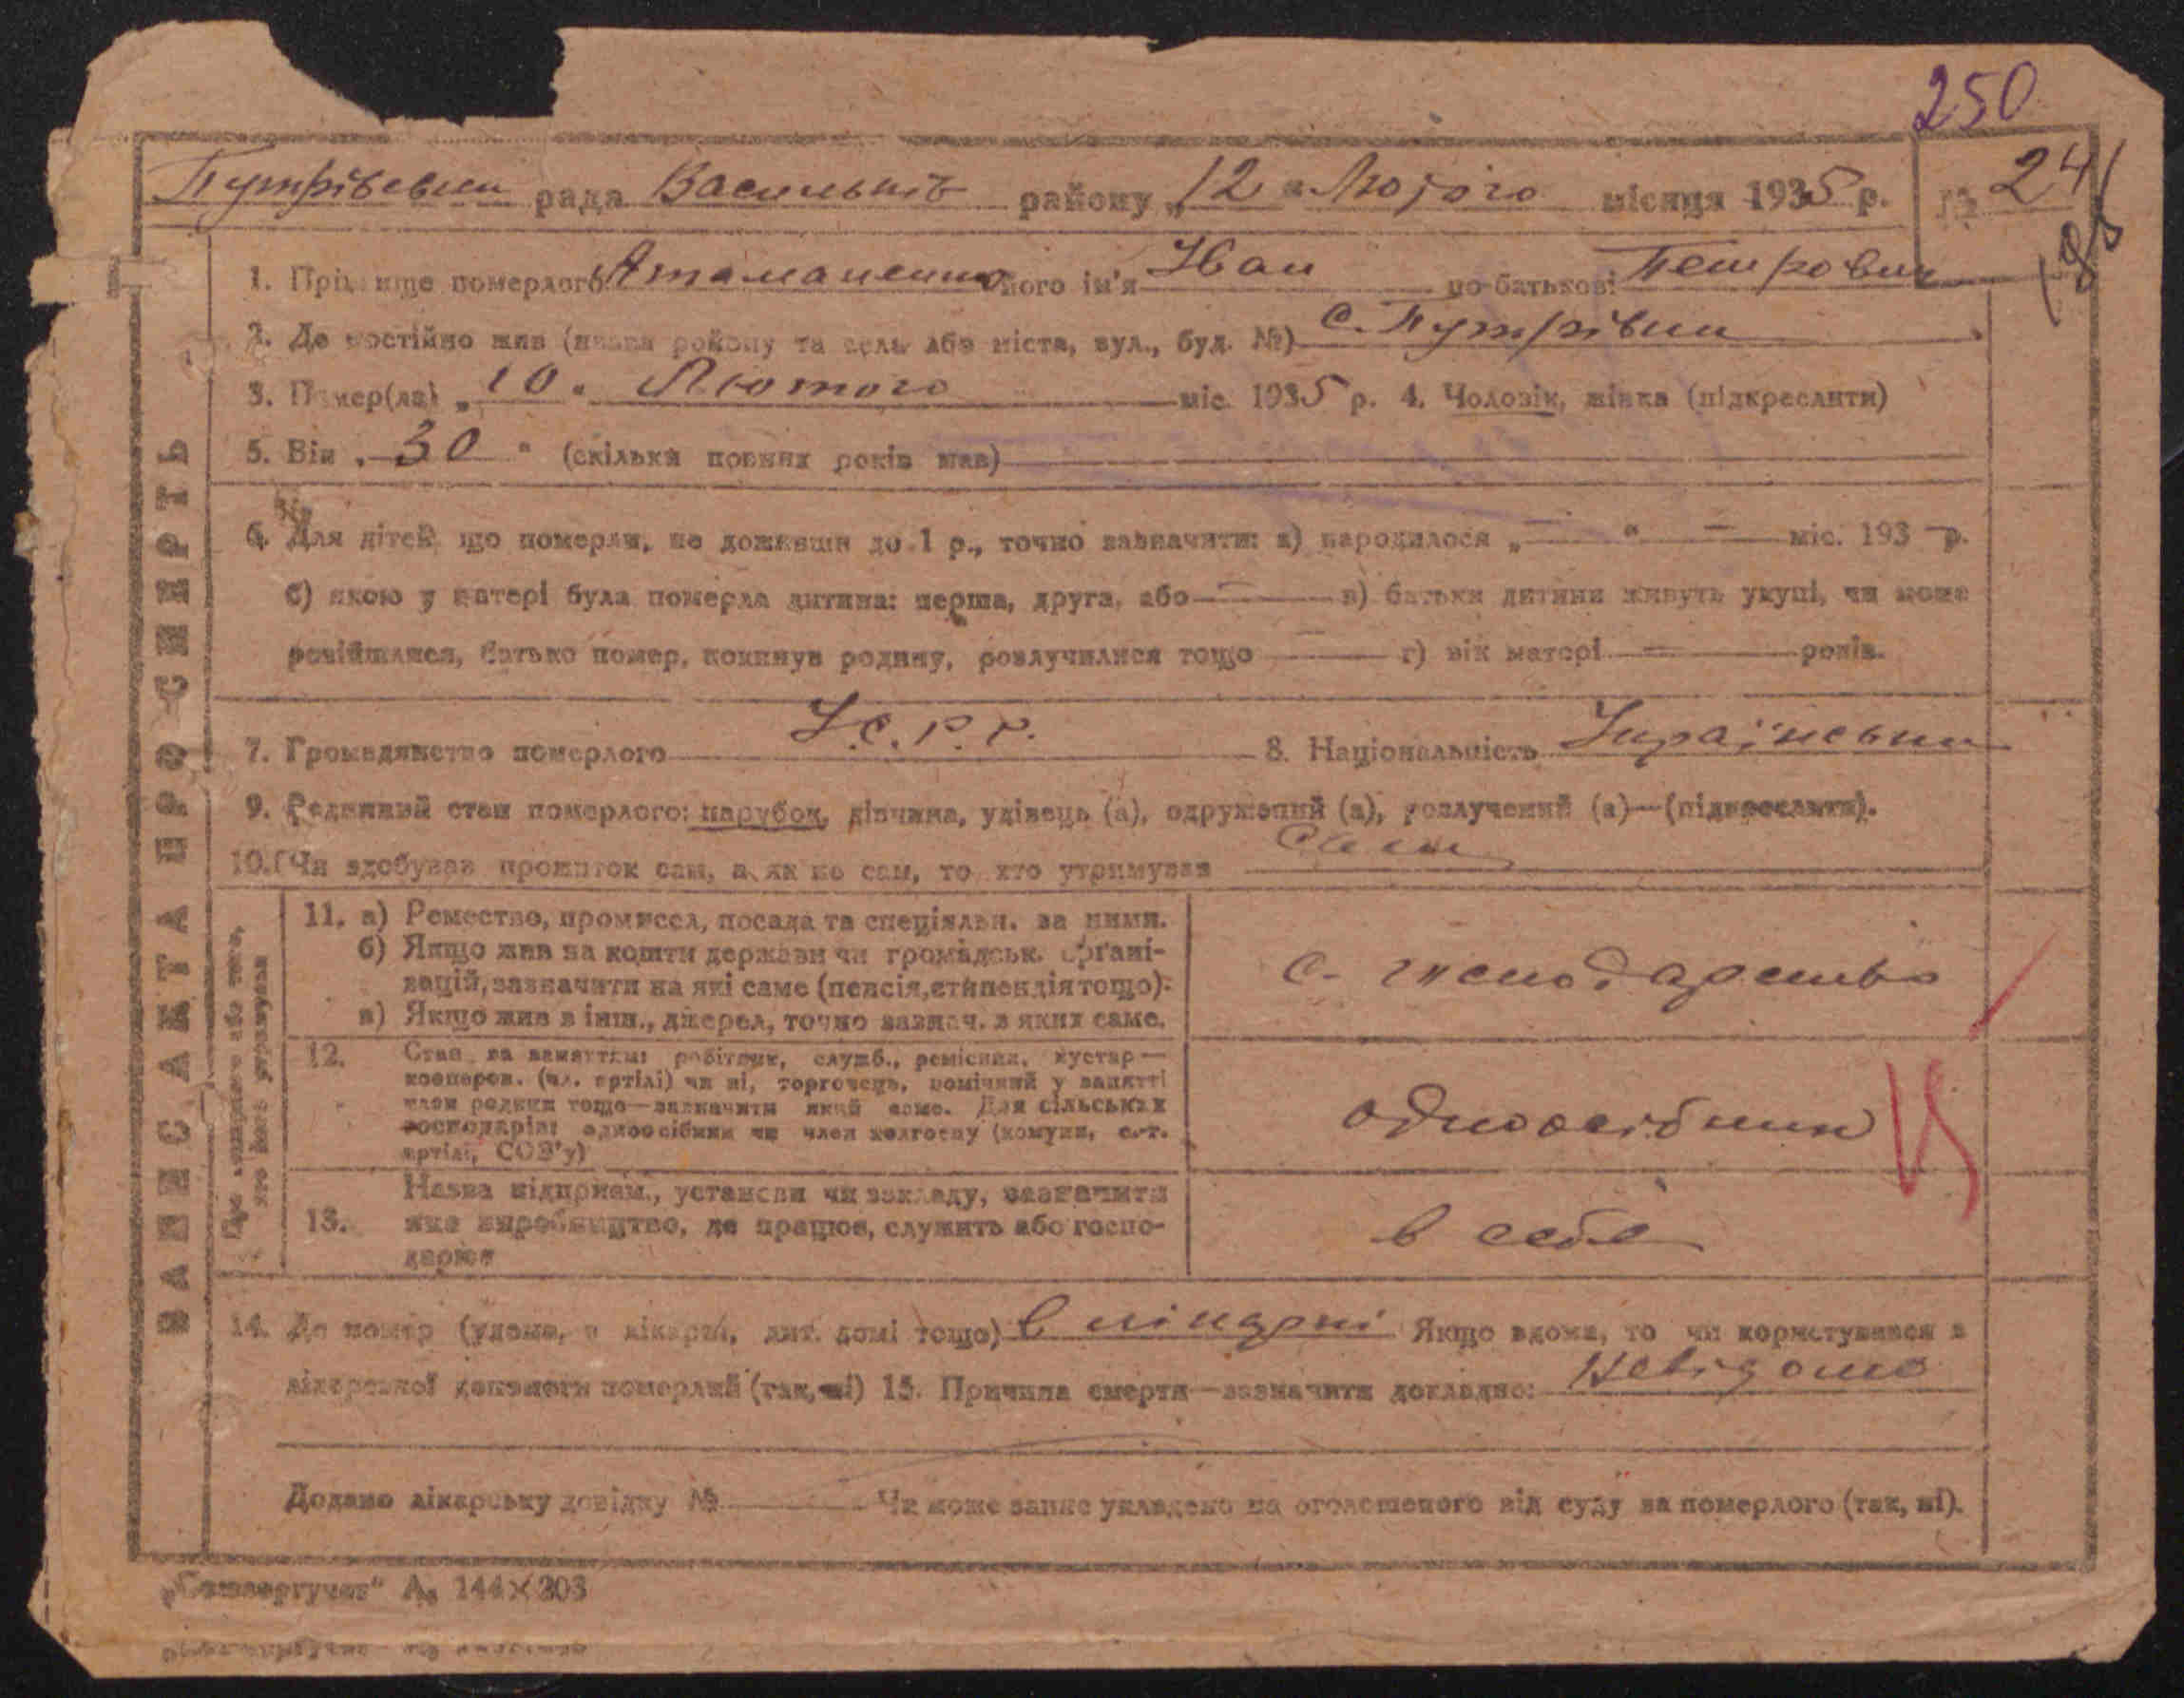 250
Путрівськ рада Васильків району „12“ Лютого місяця 1935 р. № 24
1. Прізвище померлого Атаманенко його ім'я Иван по батькові Петрович
2. Де постійно жив (назва району та села або міста, вул., буд. №) с. Путрівки
3. Помер(ла) „10“ Лютого міс. 1935 р. 4. Чоловік, жінка (підкреслити)
5. Вік „30“ (скільки повних років мав)
6. Для дітей, що померли, не доживши до 1 р., точно зазначити: а) народилося „—“ — міс. 193 — р.
б) якою у матері була померла дитина: перша, друга, або — в) батьки дитини живуть укупі, чи може
розійшлися, батько помер, покинув родину, розлучилися тощо — г) вік матері — років.
7. Громадянство померлого У.С.Р.Р. 8. Національність Українськи
9. Родинний стан померлого: парубок, дівчина, удівець (а), одружений (а), розлучений (а)—(підкреслити).
10. Чи здобував прожиток сам, а як не сам, то хто утримував Сам
11. а) Ремество, промисел, посада та спеціяльн. за ними.
б) Якщо жив на кошти держави чи громадськ. органі-
зацій, зазначити на які саме (пенсія, стипендія тощо).
в) Якщо жив з інш., джерел, точно зазнач. з яких саме.
с. господарство
12. Стан за заняттям: робітник, служб., ремісник, кустар—
кооперов. (чл. артілі) чи ні, торговець, помічний у занятті
член родини тощо—зазначити який саме. Для сільських
господарів: одноосібник чи член колгоспу (комуни, с.-г.
артілі, СОЗ'у)
одноосібник
13. Назва підприєм., установи чи закладу, зазначити
яке виробництво, де працює, служить або госпо-
дарює
в себе
14. Де помер (удома, в лікарні, дит. домі тощо) в лікарні Якщо вдома, то чи користувався з
лікарської допомоги померлий (так, ні) 15. Причина смерти—зазначити докладно: Невідомо
Додано лікарську довідку № — Чи може запис укладено на оголошеного від суду за померлого (так, ні).
А₅ 144×203
ЗАПИС АКТА ПРО СМЕРТЬ